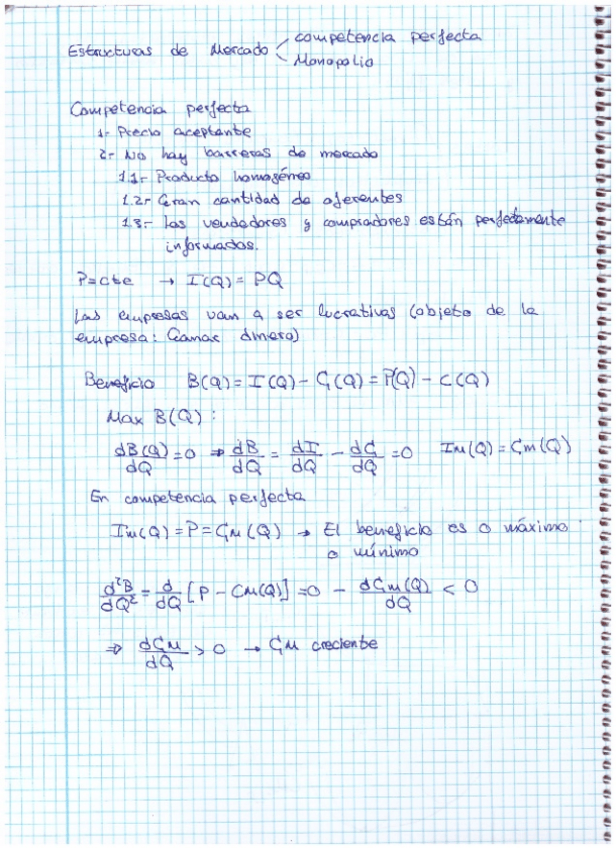 Estructuras de Mercado < competencia perfecta
Monopolio
Competencia perfecta
1- Precio aceptante
2- No hay barreras de mercado
1.1- Producto homogéneo
1.2- Gran cantidad de oferentes
1.3- Los vendedores y compradores están perfectamente
informados.
P=cte → I(Q) = PQ
Las empresas van a ser lucrativas (objeto de la
empresa: Ganar dinero)
Beneficio B(Q) = I(Q) - C(Q) = P(Q) - C(Q)
Max B(Q):
dB(Q)/dQ = 0 ⇒ dB/dQ = dI/dQ - dC/dQ = 0 Im(Q) = Cm(Q)
En competencia perfecta
Im(Q) = P = CM(Q) → El beneficio es o máximo
o mínimo
d²B/dQ² = d/dQ [P - CM(Q)] = 0 - dCm(Q)/dQ < 0
⇒ dCM/dQ > 0 → CM creciente